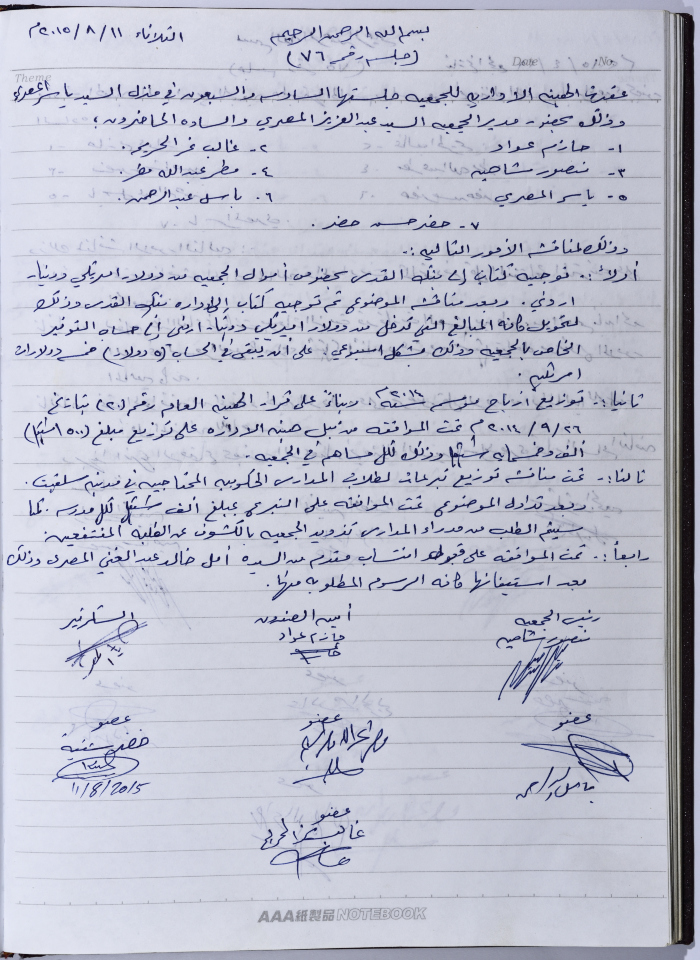 بسم الله الرحمن الرحيم
الثلاثاء ٢٠١٥/٨/١١م
(جلسة رقم ٧٦)
Theme
Date
No.
عقدت الهيئة الادارية للجمعية جلستها السادسة والسبعون في منزل السيد ياسر المصري
وذلك بحضور مدير الجمعية السيد عبد العزيز المصري والسادة الحاضرون:
١- حازم عواد
٢- غالب عز
٣- منصور شاهين
٤- مطر عبد الله مطر.
٥- ياسر المصري
٦- باسل عبد الرحمن.
٧- خضر حسن خضر.
وذلك لمناقشة الأمور التالية:-
أولاً:- توجيه كتاب إلى بنك القدس بخصوص أموال الجمعية من دولار امريكي ودينار
اردني. وبعد مناقشة الموضوع تم توجيه كتاب إلى ادارة بنك القدس وذلك
لتحويل كافة المبالغ التي تدخل من دولار امريكي ودينار اردني إلى حساب التوفير
الخاص بالجمعية وذلك بشكل اسبوعي، على أن يتبقى في الحساب (٥ دولار) خمسة دولارات
امريكية.
ثانياً:- توزيع أرباح سنة ٢٠١٤م بناءً على قرار الهيئة العامة رقم (٢) بتاريخ
٢٠١٤/٩/٢٦م تمت الموافقة من قبل هيئة الادارة على توزيع مبلغ (١٥٠٠ شيقل)
ألف وخمسماية شيقل وذلك لكل مساهم في الجمعية.
ثالثاً:- تمت مناقشة توزيع تبرعات لطلاب المدارس الحكومية المحتاجين في مدينة سلفيت.
وبعد تداول الموضوع تمت الموافقة على التبرع بمبلغ ألف شيقل لكل مدرسة. كما
سيتم الطلب من مدراء المدارس تزويد الجمعية بالكشوف عن الطلبة المنتفعين.
رابعاً:- تمت الموافقة على قبول انتساب مقدم من السيدة أمل خالد عبد الغني المصري وذلك
بعد استيفائها كافة الرسوم المطلوبة منها.
رئيس الجمعية
أمين الصندوق
السكرتير
منصور شاهين
حازم عواد
عضو
عضو
عضو
مطر عبد الله مطر
خضر
11/8/2015
عضو
غالب
AAA紙製品NOTEBOOK